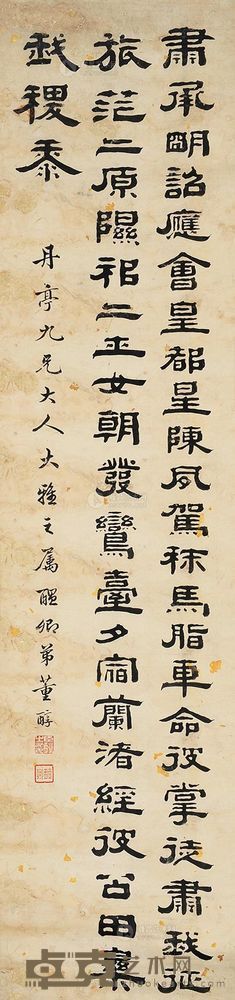 肅承明詔應會皇都星陳夙駕秣馬脂車命彼掌徒肅我征
旅芒芒原隰祁祁士女朝發鸞臺夕宿蘭渚經彼公田樂
我稷黍
丹亭九兄大人大雅之屬醖卿弟董醇
卓克艺术网